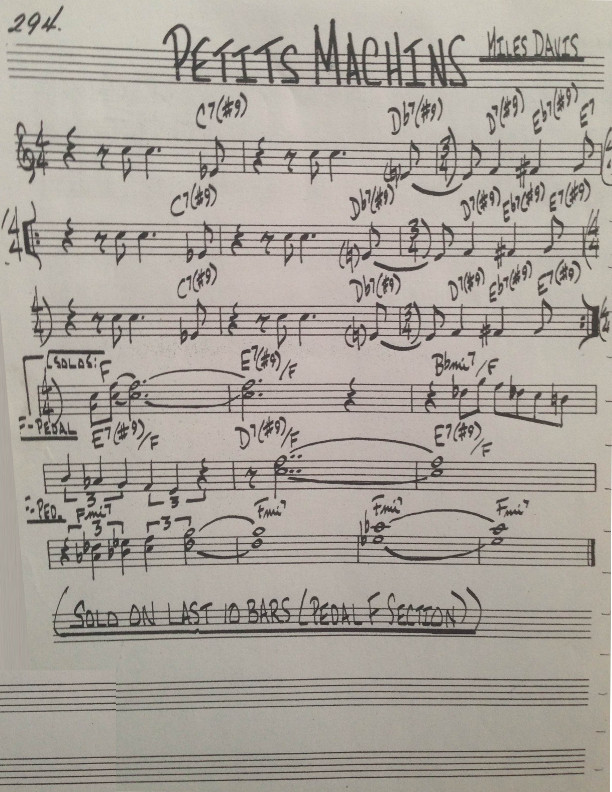 294.
PETITS MACHINS MILES DAVIS
C7(#9) Db7(#9) D7(#9) Eb7(#9) E7
4/4 3/4
C7(#9) Db7(#9) D7(#9) Eb7(#9) E7(#9)
4/4 3/4
C7(#9) Db7(#9) D7(#9) Eb7(#9) E7(#9)
4/4 3/4
(SOLOS: F E7(#9)/F Bbmi7/F
F-PEDAL E7(#9)/F D7(#9)/F E7(#9)/F
3 3
F-PED. Fmi7 Fmi7 Fmi7 Fmi7
3 3
(SOLO ON LAST 10 BARS (PEDAL F SECTION))